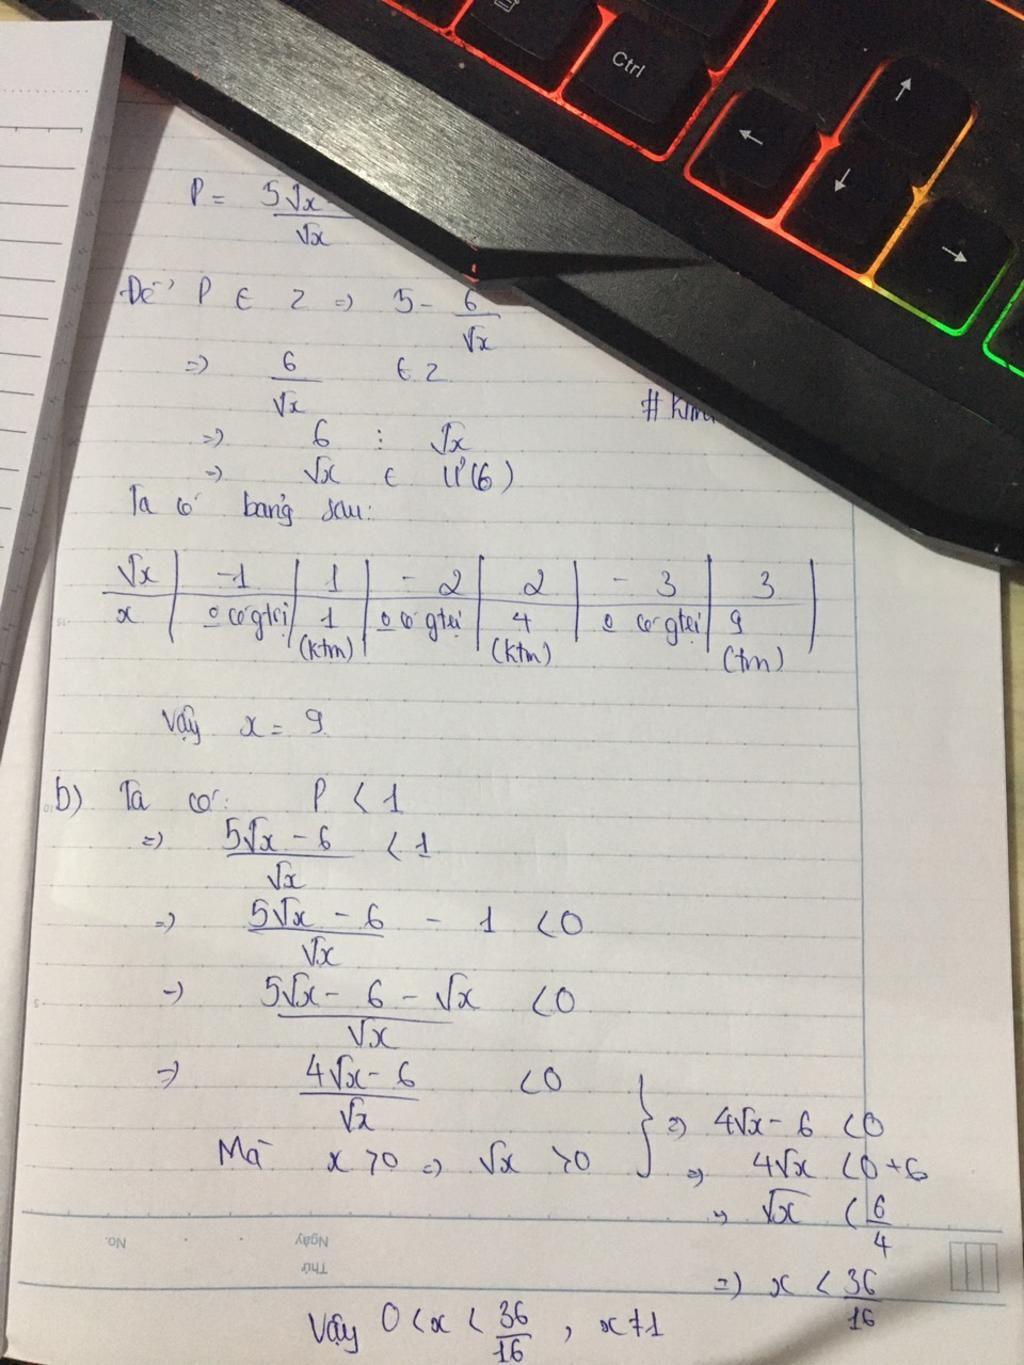 Ctrl
P = 5√x / √x
Để P ∈ Z => 5 - 6/√x
=> 6/√x ∈ Z
# Kim
=> 6 ⋮ √x
=> √x ∈ Ư(6)
Ta có bảng sau:
√x | -1 | 1 | -2 | 2 | -3 | 3
x | o có gtrị | 1 (ktm) | o có gtrị | 4 (ktm) | o có gtrị | 9 (tm)
Vậy x = 9
b) Ta có: P < 1
=> (5√x - 6)/√x < 1
=> (5√x - 6)/√x - 1 < 0
=> (5√x - 6 - √x)/√x < 0
=> (4√x - 6)/√x < 0
Mà x > 0 => √x > 0
} => 4√x - 6 < 0
=> 4√x < 0 + 6
=> √x < 6/4
=> x < 36/16
Vậy 0 < x < 36/16 , x ≠ 1
Thứ
Ngày
No.